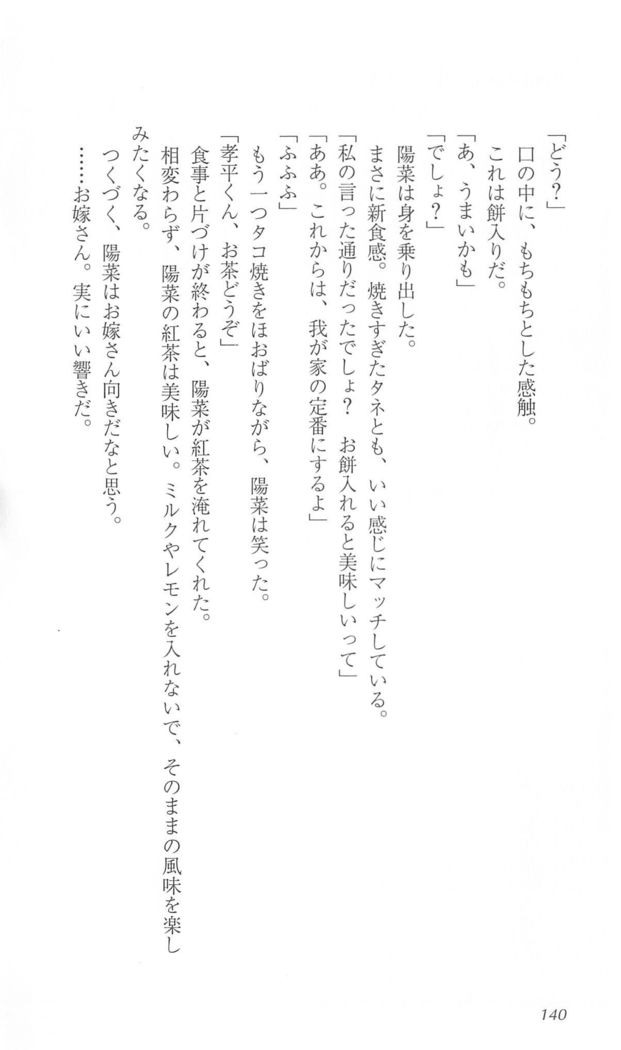 「どう?」
口の中に、もちもちとした感触。
これは餅入りだ。
「あ、うまいかも」
「でしょ?」
陽菜は身を乗り出した。
まさに新食感。焼きすぎたタネとも、いい感じにマッチしている。
「私の言った通りだったでしょ? お餅入れると美味しいって」
「ああ。これからは、我が家の定番にするよ」
「ふふふ」
もう一つタコ焼きをほおばりながら、陽菜は笑った。
「孝平くん、お茶どうぞ」
食事と片づけが終わると、陽菜が紅茶を淹れてくれた。
相変わらず、陽菜の紅茶は美味しい。ミルクやレモンを入れないで、そのままの風味を楽し
みたくなる。
つくづく、陽菜はお嫁さん向きだなと思う。
……お嫁さん。実にいい響きだ。
140